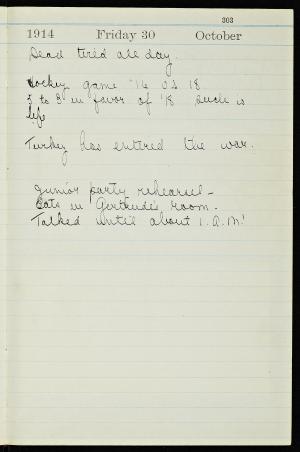 303
1914 Friday 30 October
Dead tired all day.
Hockey game '16 vs 18
5 to 3 in favor of '18 Such is
life
Turkey has entired the war.
Junior party rehearsel -
Eats in Gertrude's room.
Talked until about 1. A.M!